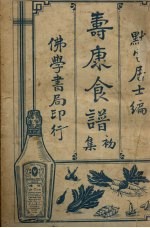 默᠎居士編
壽康食譜
初集
佛學書局印行